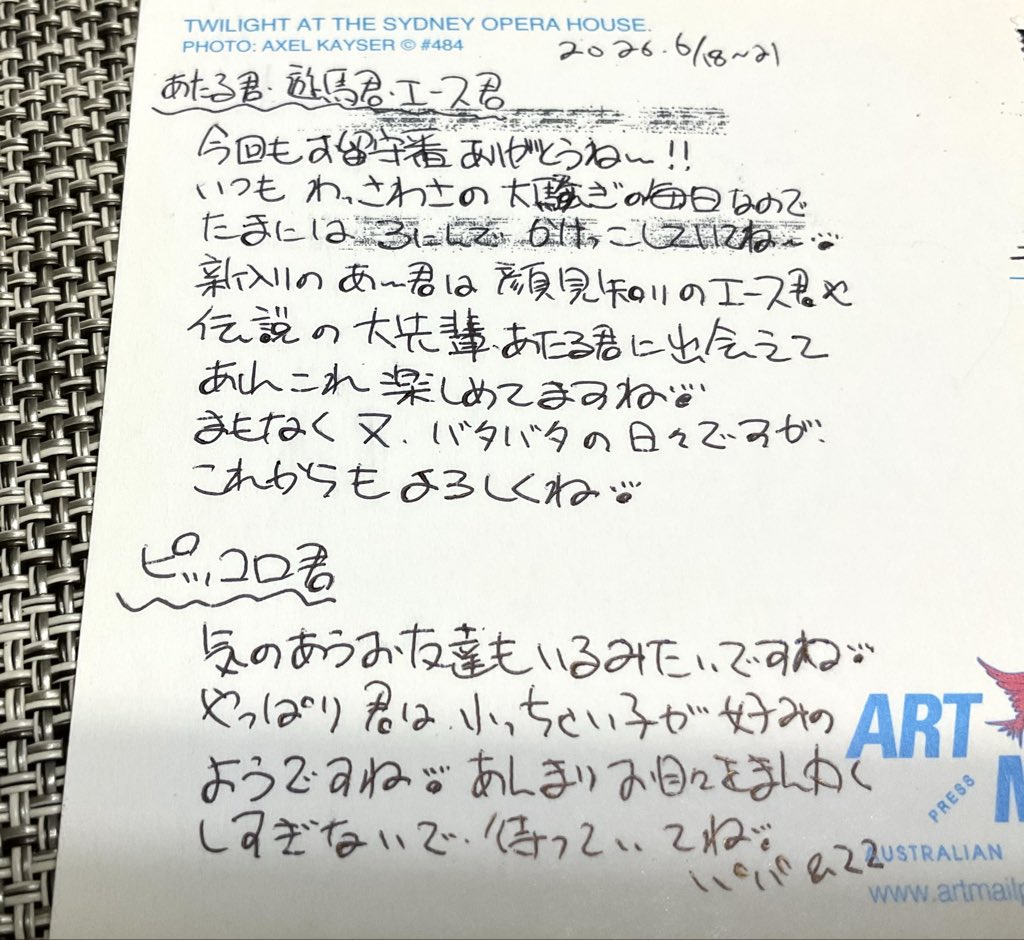 TWILIGHT AT THE SYDNEY OPERA HOUSE.
PHOTO: AXEL KAYSER © #484
2026.6/18~21
あたる君・遊馬君・エース君
今回もお留守番ありがとうね〜!!
いつも わっさわさの大騒ぎの毎日なので
たまには かけっこしていてね〜
新入りの あ〜君は 顔見知りのエース君や
伝説の大先輩、あたる君に出会えて
あれこれ 楽しめてますね
まもなく 又、バタバタの日々ですが、
これからも よろしくね
ピッコロ君
気のあうお友達もいるみたいですね
やっぱり 君は、小っちゃい子が好みの
ようですね あんまりお目々をまん丸く
しすぎないで、待っていてね
ART
PRESS
AUSTRALIAN